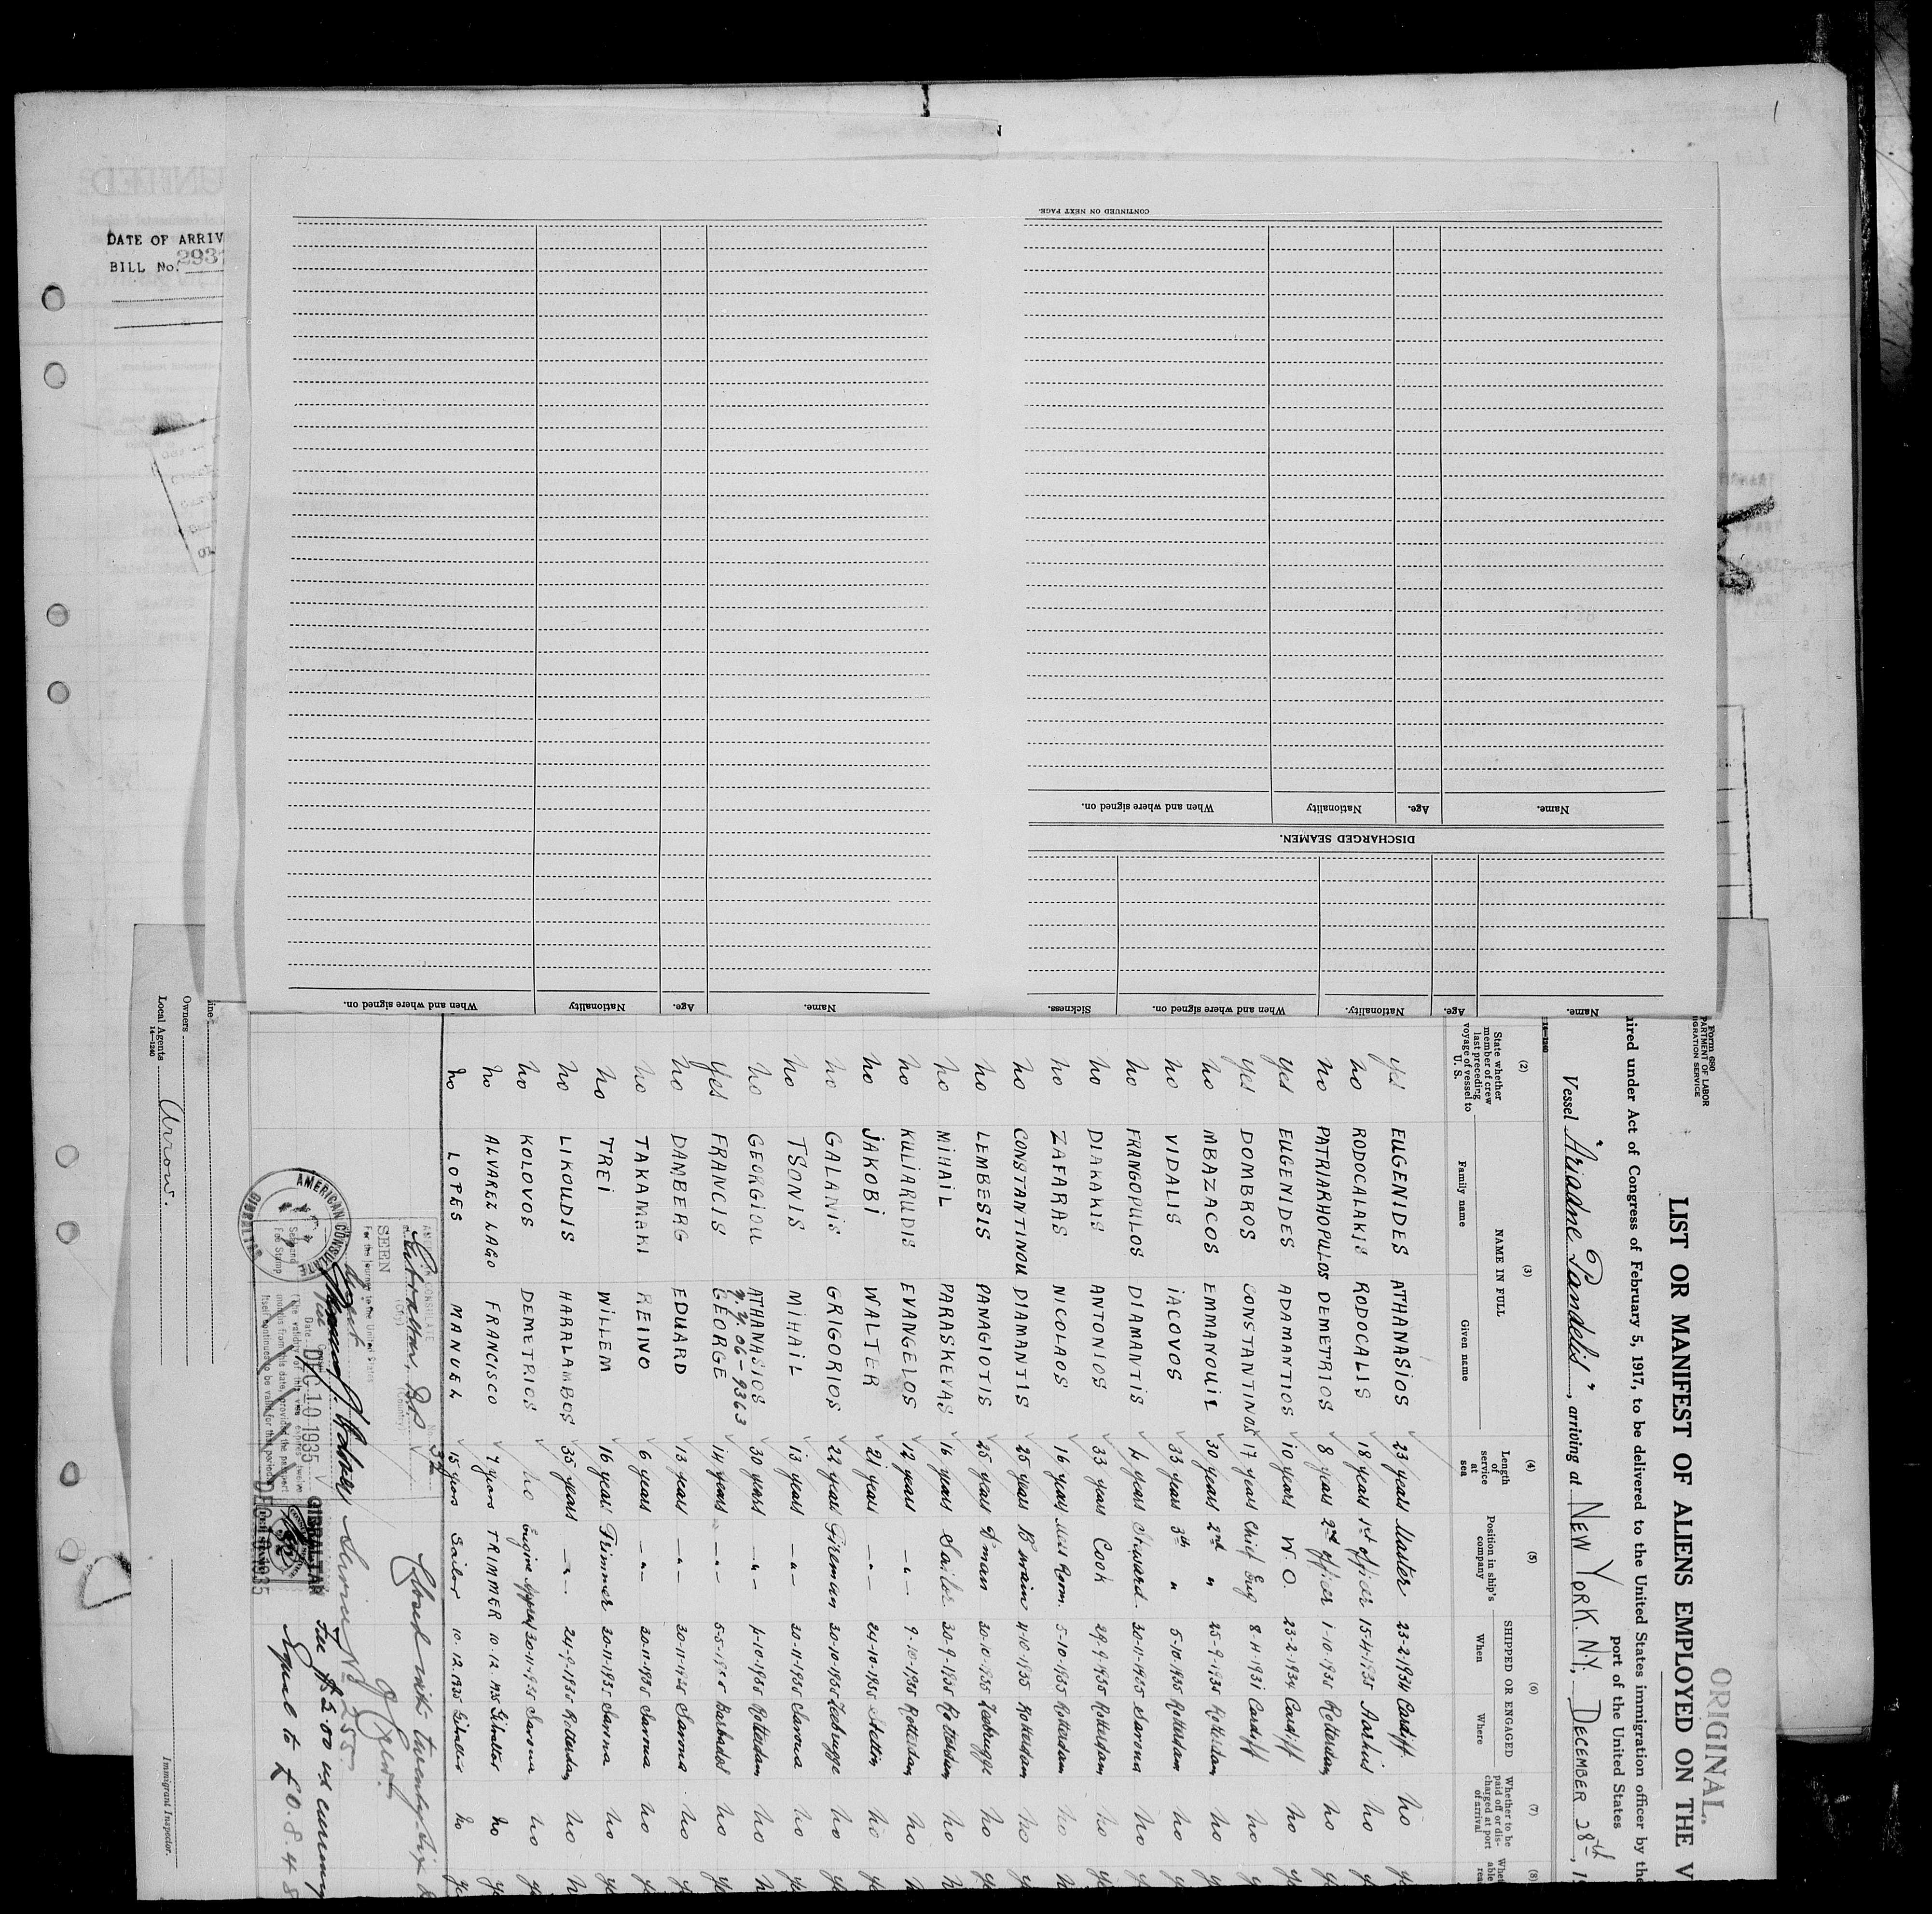 DATE OF ARRIV
BILL No. 293
CONTINUED ON NEXT PAGE.
Name. Age. Nationality When and where signed on.
DISCHARGED SEAMEN.
Name. Age. Nationality. When and where signed on. Sickness.
Name. Age. Nationality When and where signed on.
ORIGINAL.
Form 680
PARTMENT OF LABOR
IGRATION SERVICE
LIST OR MANIFEST OF ALIENS EMPLOYED ON THE V
ired under Act of Congress of February 5, 1917, to be delivered to the United States immigration officer by the
port of the United States
Vessel "Ariadne Pandelis", arriving at NEW YORK. N.Y., DECEMBER 28th, 1
14—1240
(2) (3) (4) (5) (6) (7) (8)
State whether member of crew last preceding voyage of vessel to U. S. NAME IN FULL Family name Given name Length of service at sea Position in ship's company SHIPPED OR ENGAGED When Where Whether to be paid off or discharged at port of arrival
yes EUGENIDES ATHANASIOS 23 years Master 23-2-1934 Cardiff no
no RODOCALAKIS RODOCALIS 18 years 1st officer 15-4-1935 Aarhus no
no PATRIARHOPULOS DEMETRIOS 8 years 2nd officer 1-10-1935 Rotterdam no
yes EUGENIDES ADAMANTIOS 10 years W.O. 23-2-1934 Cardiff no
yes DOMBROS CONSTANTINOS 17 years Chief Eng 8-4-1931 Cardiff no
no MBAZACOS EMMANOUIL 30 years 2nd " 25-9-1935 Rotterdam no
no VIDALIS IACOVOS 33 years 3th " 5-10-1935 Rotterdam no
no FRANGOPULOS DIAMANTIS 4 years Steward 30-11-1935 Savona no
no DIAKAKIS ANTONIOS 33 years Cook 29-9-1935 Rotterdam no
no ZAFARAS NICOLAOS 16 years Mess Room 5-10-1935 Rotterdam no
no CONSTANTINOU DIAMANTIS 25 years B'swain 4-10-1935 Rotterdam no
no LEMBESIS PANAGIOTIS 25 years D'man 30-10-1935 Zeebrugge no
no MIHAIL PARASKEVAS 16 years Sailor 30-9-1935 Rotterdam no
no KULIARUDIS EVANGELOS 12 years -"- 9-10-1935 Rotterdam no
no JAKOBI WALTER 21 years -"- 24-10-1935 Stettin no
no GALANIS GRIGORIOS 22 years Fireman 30-10-1935 Zeebrugge no
no TSONIS MIHAIL 13 years -"- 30-11-1935 Savona no
no GEORGIOU ATHANASIOS 30 years -"- 4-10-1935 Rotterdam no
9363
yes FRANCIS GEORGE 14 years -"- Barbados no
no DAMBERG EDUARD 13 years -"- 30-11-1935 Savona no
no TAKAMAKI REINO 6 years -"- 30-11-1935 Savona no
no TREI WILLEM 16 years Trimmer 30-11-1935 Savona no
no LIKOUDIS HARALAMBOS 35 years -"- 24-9-1935 Rotterdam no
no KOLOVOS DEMETRIOS no Engine 30-11-935 Savona no
no ALVAREZ LAGO FRANCISCO 7 years TRIMMER 10.12.1935 Gibraltar no
no LOPES MANUEL 15 years Sailor 10.12.1935 Gibraltar no
Closed with twenty six
SEEN
For the journey to the United States
Gibraltar,
(City) (Country)
Date DEC 10 1935
AMERICAN CONSULATE
GIBRALTAR
Service No 255
GIBRALTAR
DEC 10 1935
Fee $2.00 us currency
Equal to £0.8.4
Owners
Local Agents Arrow.
14—1240
Immigrant Inspector.